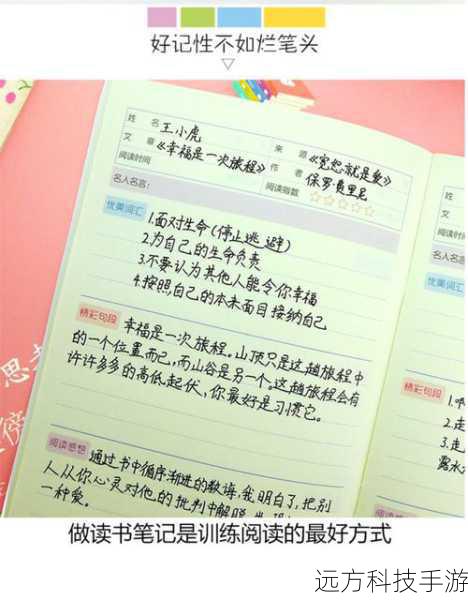 好记性不如烂笔头
姓 名 王小虎
来 源 《宽恕就是爱》
文 章 《幸福是一次旅程》
作 者 保罗·费里尼
阅读时间
阅读指数 ☆☆☆☆☆
名人名言:
优美词汇
1.面对生命(停止逃避)
2.为自己的生命负责
3.不要认为其他人能令你幸福
4.按照自己的本来面目接纳自己
精彩句段
幸福是一次旅程。山顶只是这趟旅程中
的一个位置而已,而山谷是另一个。这趟旅程会有
许许多多的高低起伏,你最好是习惯它。
阅读感想
通过书中循序渐进的教诲,我明白了,把别
人从你心灵对他的批判中解脱
一种爱。
姓
文
阅读时间
名人名言
优美词汇
精彩句段
1.
2.走
3.走
露水
思
做读书笔记是训练阅读的最好方式
远方科技手游